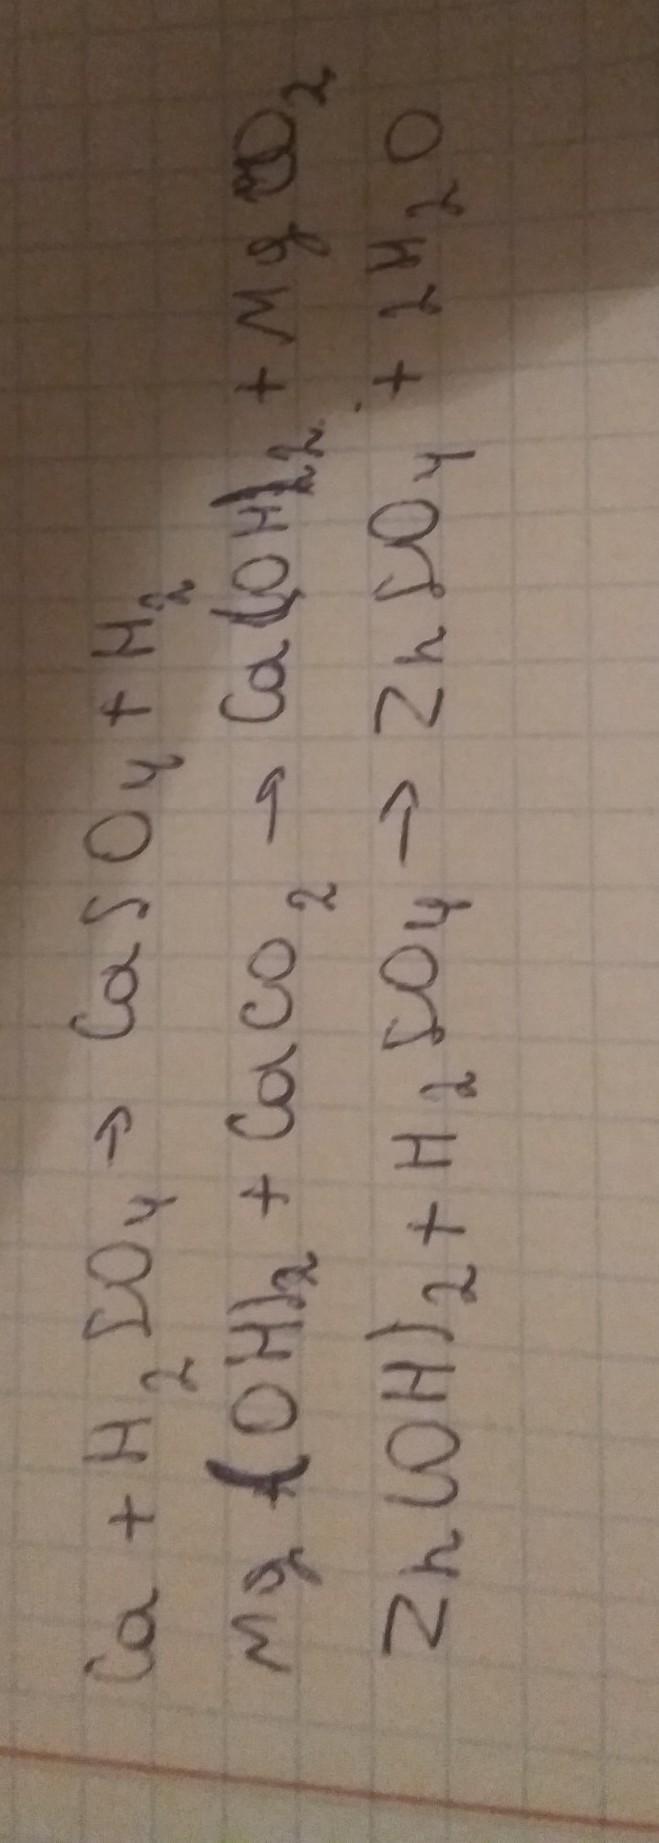 Ca + H2SO4 → CaSO4 + H2
Mg(OH)2 + CaCO2 → Ca(OH)2 + Mg
Zn(OH)2 + H2SO4 → ZnSO4 + 2H2O